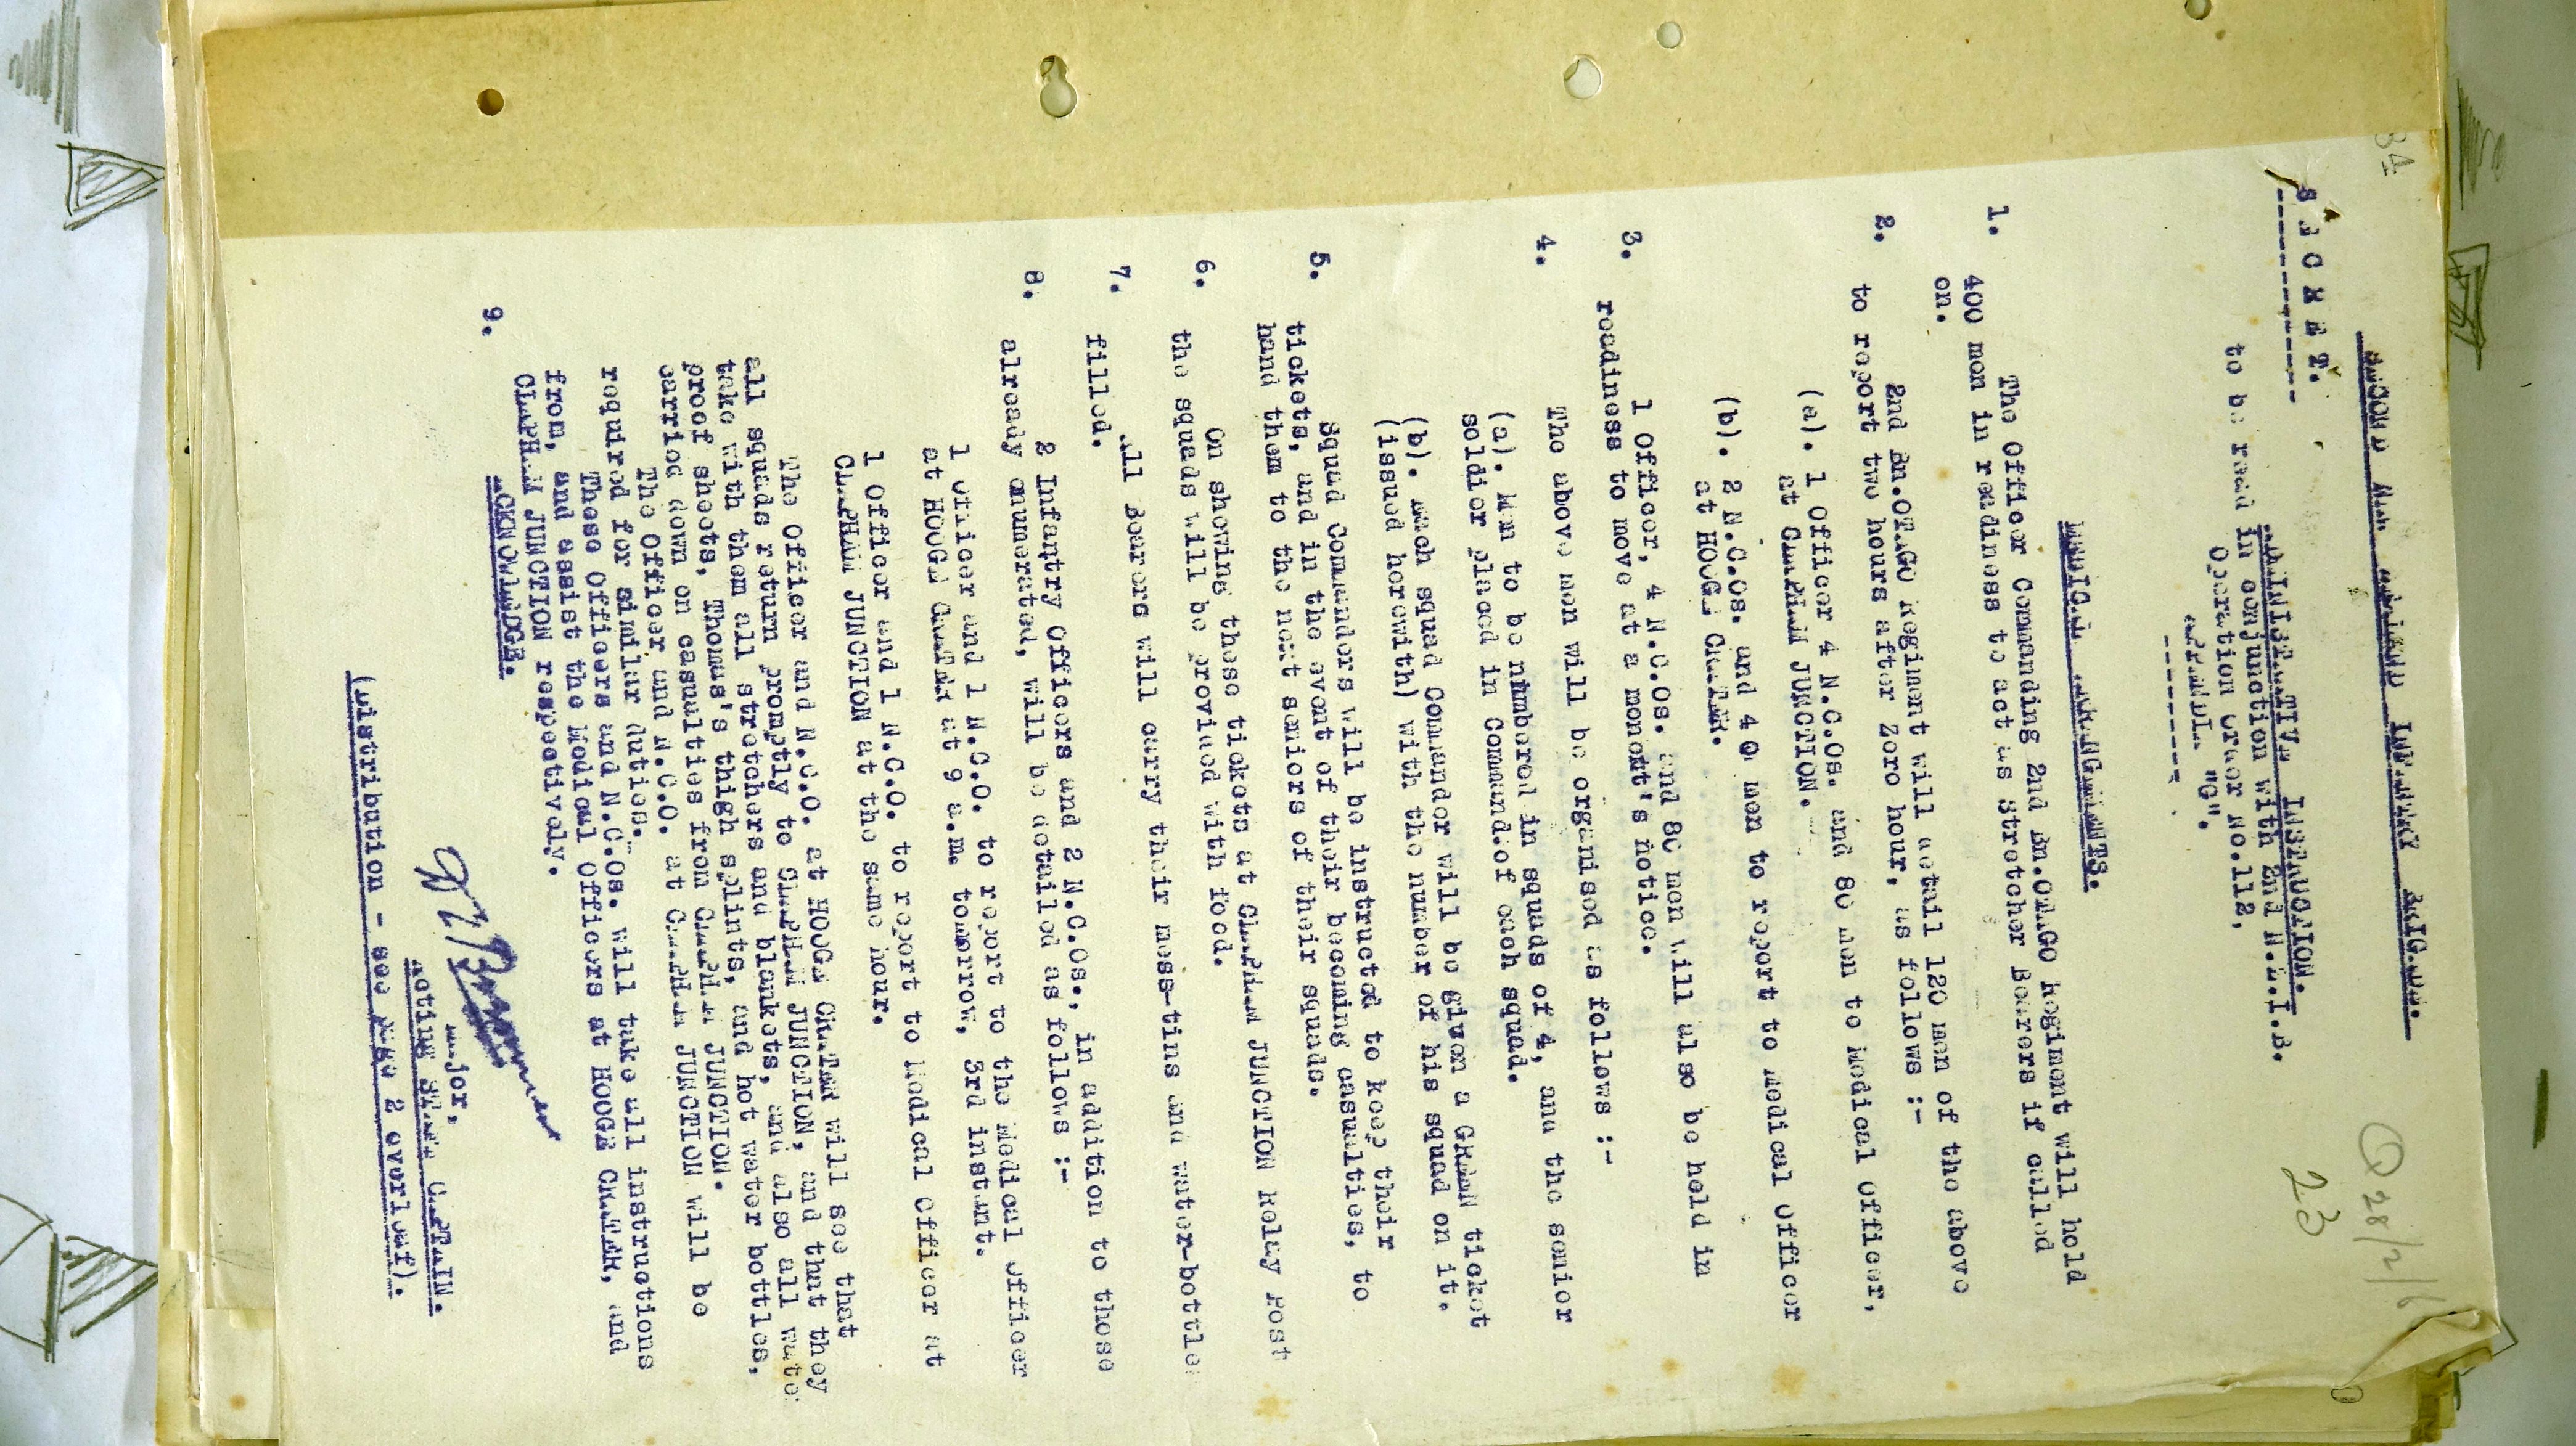 34
SECOND N.Z. INFANTRY BRIGADE.
S E C R E T.
Q 28/2/6
23
ADMINISTRATIVE INSTRUCTION.
to be read in conjunction with 2nd N.Z.I.B.
Operation Order No.112.
APPENDIX "G".
MEDICAL ARRANGEMENTS.
1. The Officer Commanding 2nd Bn.OTAGO Regiment will hold
400 men in readiness to act as Stretcher Bearers if called
on.
2. 2nd Bn.OTAGO Regiment will detail 120 men of the above
to report two hours after Zero hour, as follows :-
(a). 1 Officer 4 N.C.Os. and 80 men to Medical Officer,
at CLAPHAM JUNCTION.
(b). 2 N.C.Os. and 40 men to report to Medical Officer
at HOOGE CRATER.
3. 1 Officer, 4 N.C.Os. and 80 men will also be held in
readiness to move at a moment's notice.
4. The above men will be organised as follows :-
(a). Men to be numbered in squads of 4, and the senior
soldier placed in Command.of each squad.
(b). Each squad Commander will be given a GREEN ticket
(issued herewith) with the number of his squad on it.
5. Squad Commanders will be instructed to keep their
tickets, and in the event of their becoming casualties, to
hand them to the next seniors of their squads.
6. On showing these tickets at CLAPHAM JUNCTION Relay Post
the squads will be provided with food.
7. All Bearers will carry their mess-tins and water-bottles
filled.
8. 2 Infantry Officers and 2 N.C.Os., in addition to those
already enumerated, will be detailed as follows :-
1 Officer and 1 N.C.O. to report to the Medical Officer
at HOOGE CRATER at 9 a.m. tomorrow, 3rd instant.
1 Officer and 1 N.C.O. to report to Medical Officer at
CLAPHAM JUNCTION at the same hour.
The Officer and N.C.O. at HOOGE CRATER will see that
all squads return promptly to CLAPHAM JUNCTION, and that they
take with them all stretchers and blankets, and also all water
proof sheets, Thomas's thigh splints, and hot water bottles,
carried down on casualties from CLAPHAM JUNCTION.
The Officer and N.C.O. at CLAPHAM JUNCTION will be
required for similar duties.
These Officers and N.C.Os. will take all instructions
from, and assist the Medical Officers at HOOGE CRATER, and
CLAPHAM JUNCTION respectively.
9. ACKNOWLEDGE.
Major,
Acting STAFF CAPTAIN.
(Distribution - see Page 2 overleaf).